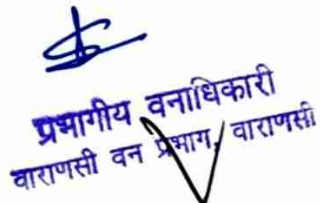 प्रभागीय वनाधिकारी
वाराणसी वन प्रभाग, वाराणसी